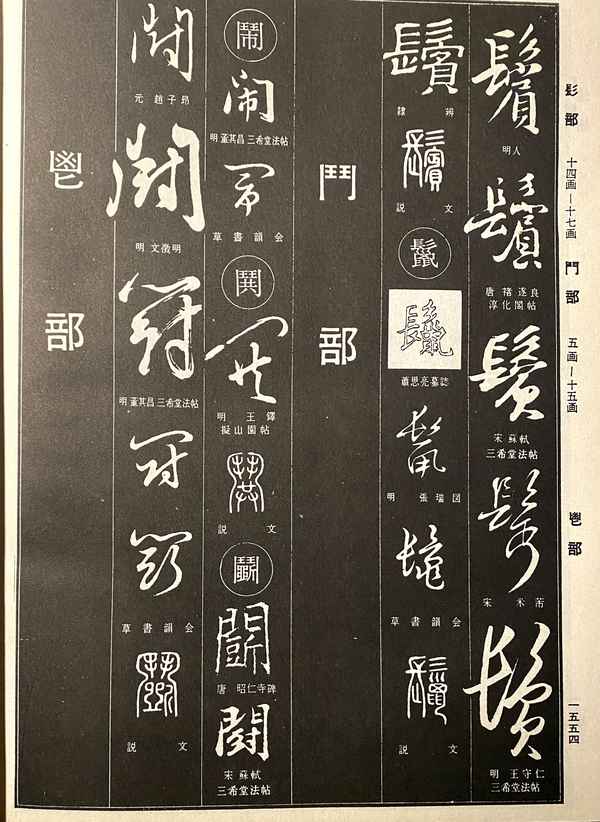 髟部
十四画—十七画
鬥部
五画—十五画
鬯部
一五五四
鬢
明人
鬢
唐 褚遂良
淳化閣帖
鬢
宋 蘇軾
三希堂法帖
鬢
宋 米芾
鬢
明 王守仁
三希堂法帖
鬢
隷辨
鬢
説文
鬣
鬣
蕭思亮墓誌
鬣
明 張瑞図
鬣
草書韻会
鬣
説文
鬥部
鬧
鬧
明 董其昌 三希堂法帖
鬧
草書韻会
鬨
鬨
明 王鐸
擬山園帖
鬨
説文
鬭
鬭
唐 昭仁寺碑
鬭
宋 蘇軾
三希堂法帖
鬭
元 趙子昂
鬭
明 文徴明
鬭
明 董其昌 三希堂法帖
鬭
鬭
草書韻会
鬭
説文
鬯部